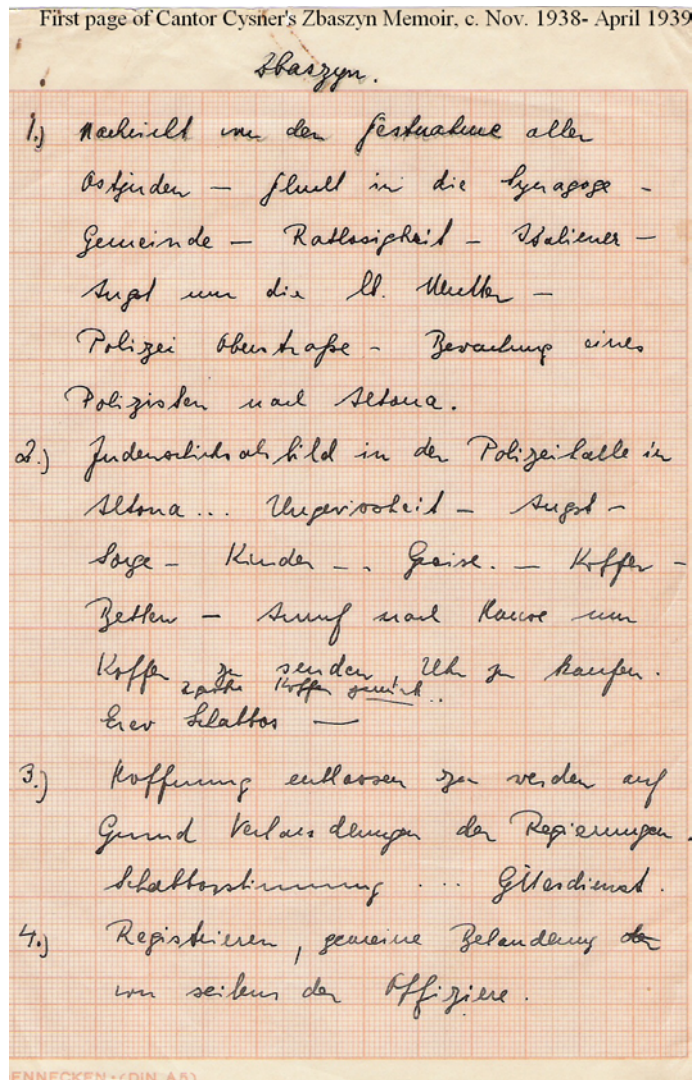 First page of Cantor Cysner's Zbaszyn Memoir, c. Nov. 1938- April 1939
Zbaszyn.
1.) Nachricht von der Festnahme aller
Ostjuden — Flucht in die Synagoge -
Gemeinde — Ratlosigkeit — Italiener —
Angst um die lb. Mutter —
Polizei Oberstraße - Bewachung eines
Polizisten nach Altona.
2.) Judenschicksalsbild in der Polizeihalle in
Altona... Ungewissheit — Angst —
Sorge — Kinder — . Greise. — Koffer —
Betten — Anruf nach Hause um
Koffer zu senden, Uhr zu kaufen.
Koffer zurück..
Erev Schabbos —
3.) Hoffnung entlassen zu werden auf
Grund Verhandlungen der Regierungen.
Schabbosstimmung ... Gottesdienst.
4.) Registrieren, gemeine Behandlung
von seitens der Offiziere.
ENNECKEN · (DIN A5)